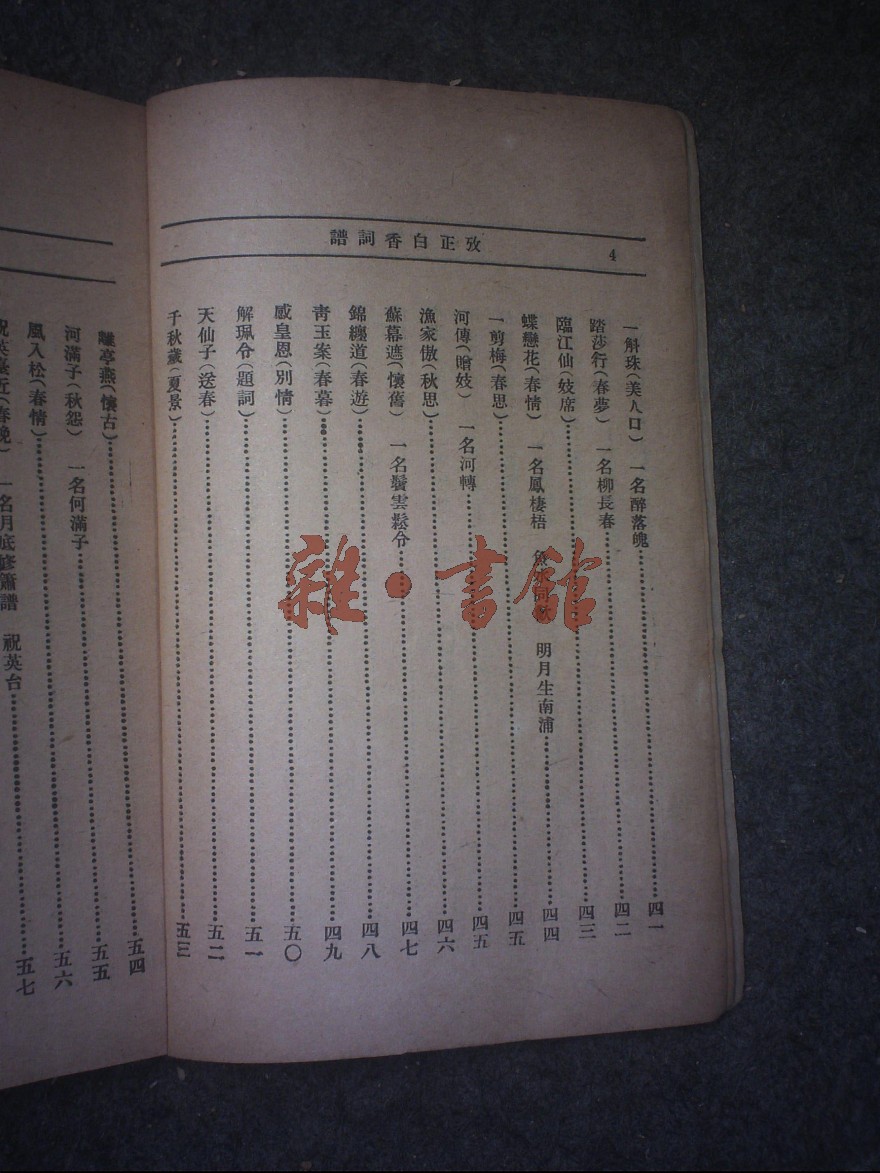 攷正白香詞譜
4
一斛珠(美人口) 一名醉落魄 四一
踏莎行(春夢) 一名柳長春 四二
臨江仙(妓席) 四三
蝶戀花(春情) 一名鳳棲梧 魚水同歡 明月生南浦 四四
一剪梅(春思) 四五
河傳(贈妓) 一名河轉 四五
漁家傲(秋思) 四六
蘇幕遮(懷舊) 一名鬢雲鬆令 四七
錦纏道(春遊) 四八
青玉案(春暮) 四九
感皇恩(別情) 五〇
解珮令(題詞) 五一
天仙子(送春) 五二
千秋歲(夏景) 五三
離亭燕(懷古) 五四
河滿子(秋怨) 一名何滿子 五五
風入松(春情) 五六
祝英臺近(春晚) 一名月底修簫譜 祝英台 五七
雜·書館